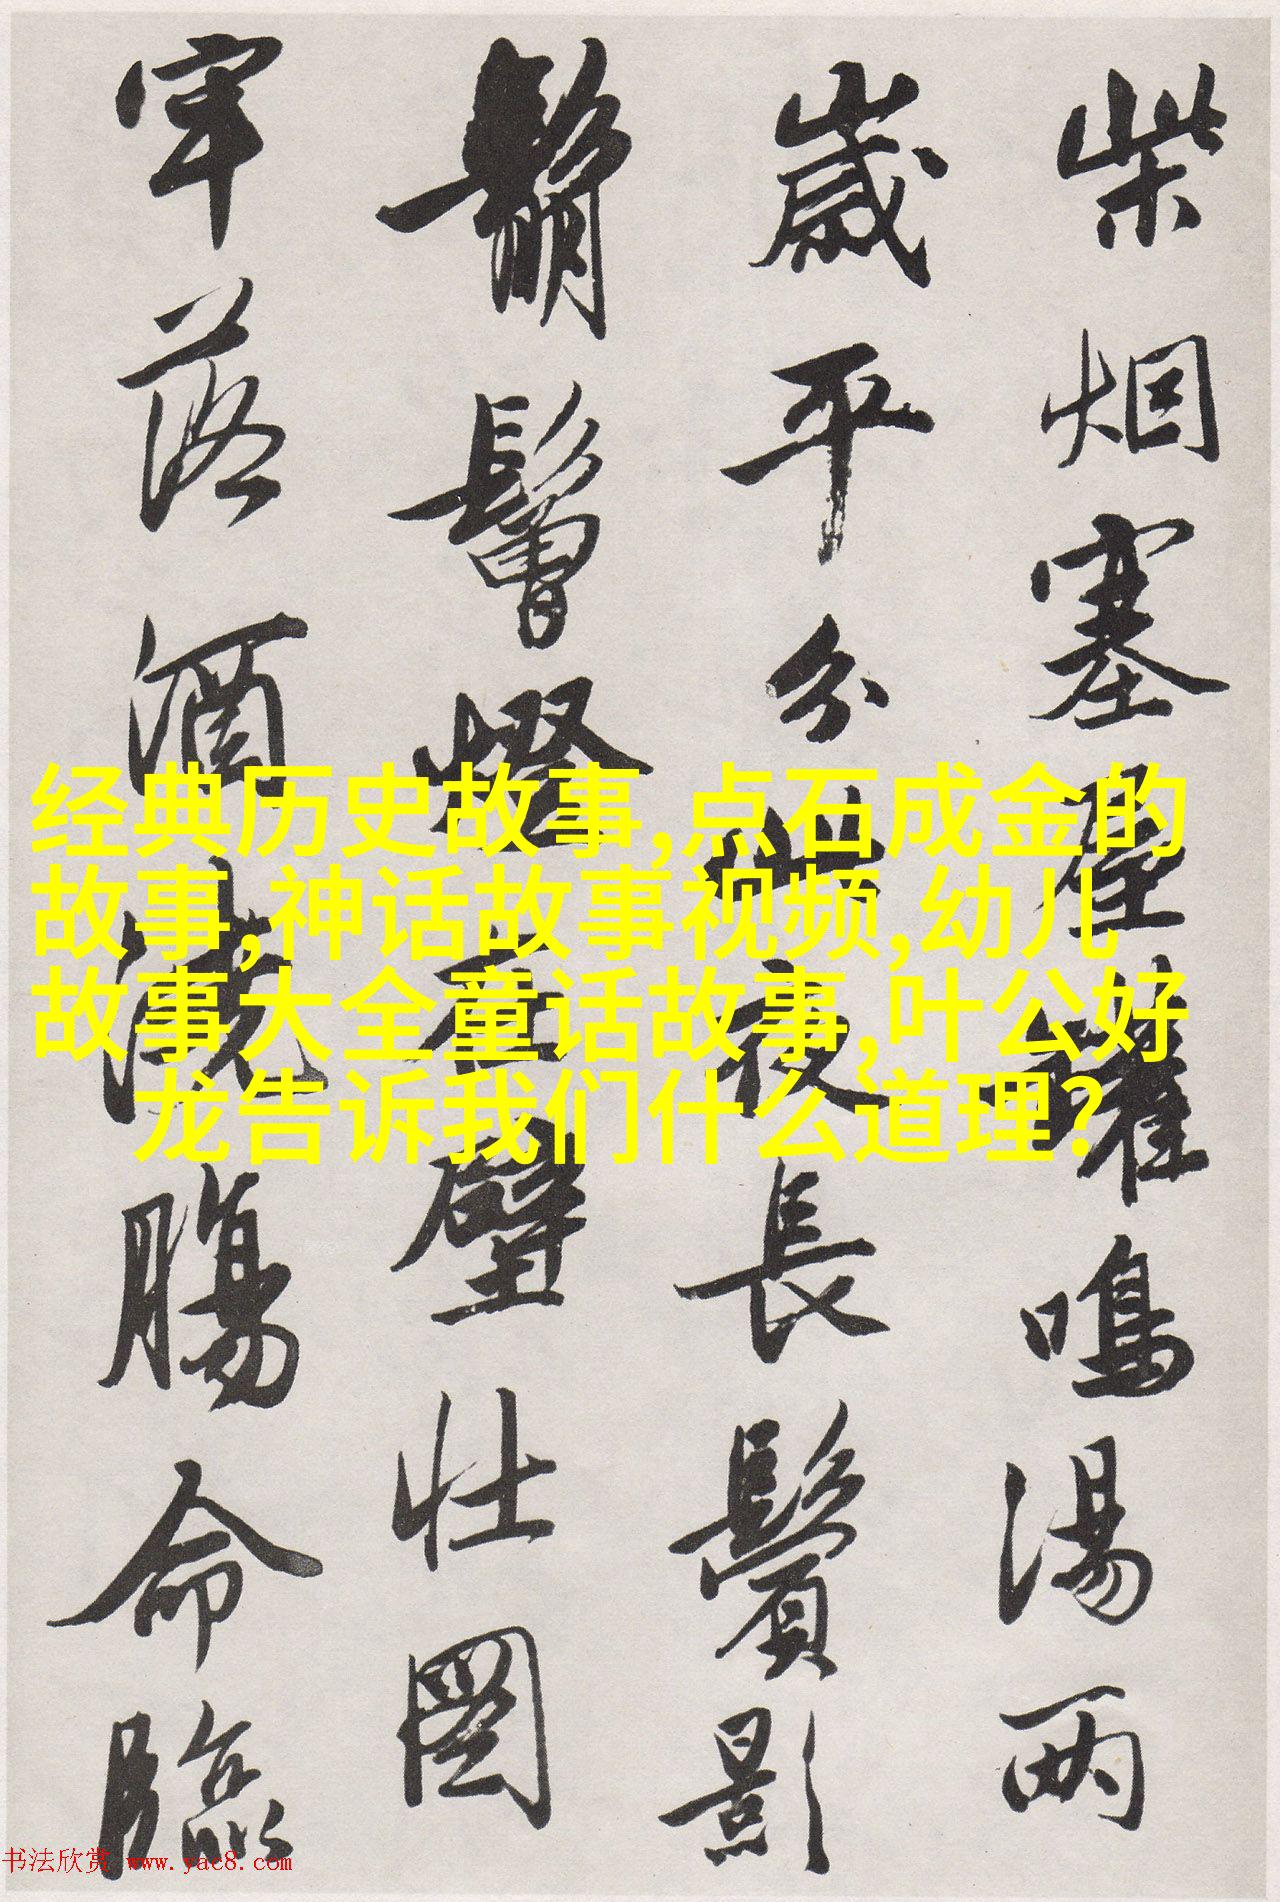 柴烟塞屋罐鳴湯兩
歲平分此夜長鬢影
鬅鬙燈在壁壯圖
牢落酒澆腸命臨
经典历史故事,点石成金的
故事,神话故事视频,幼儿
故事大全童话故事,叶公好
龙告诉我们什么道理?
书法欣赏 www.yac8.com